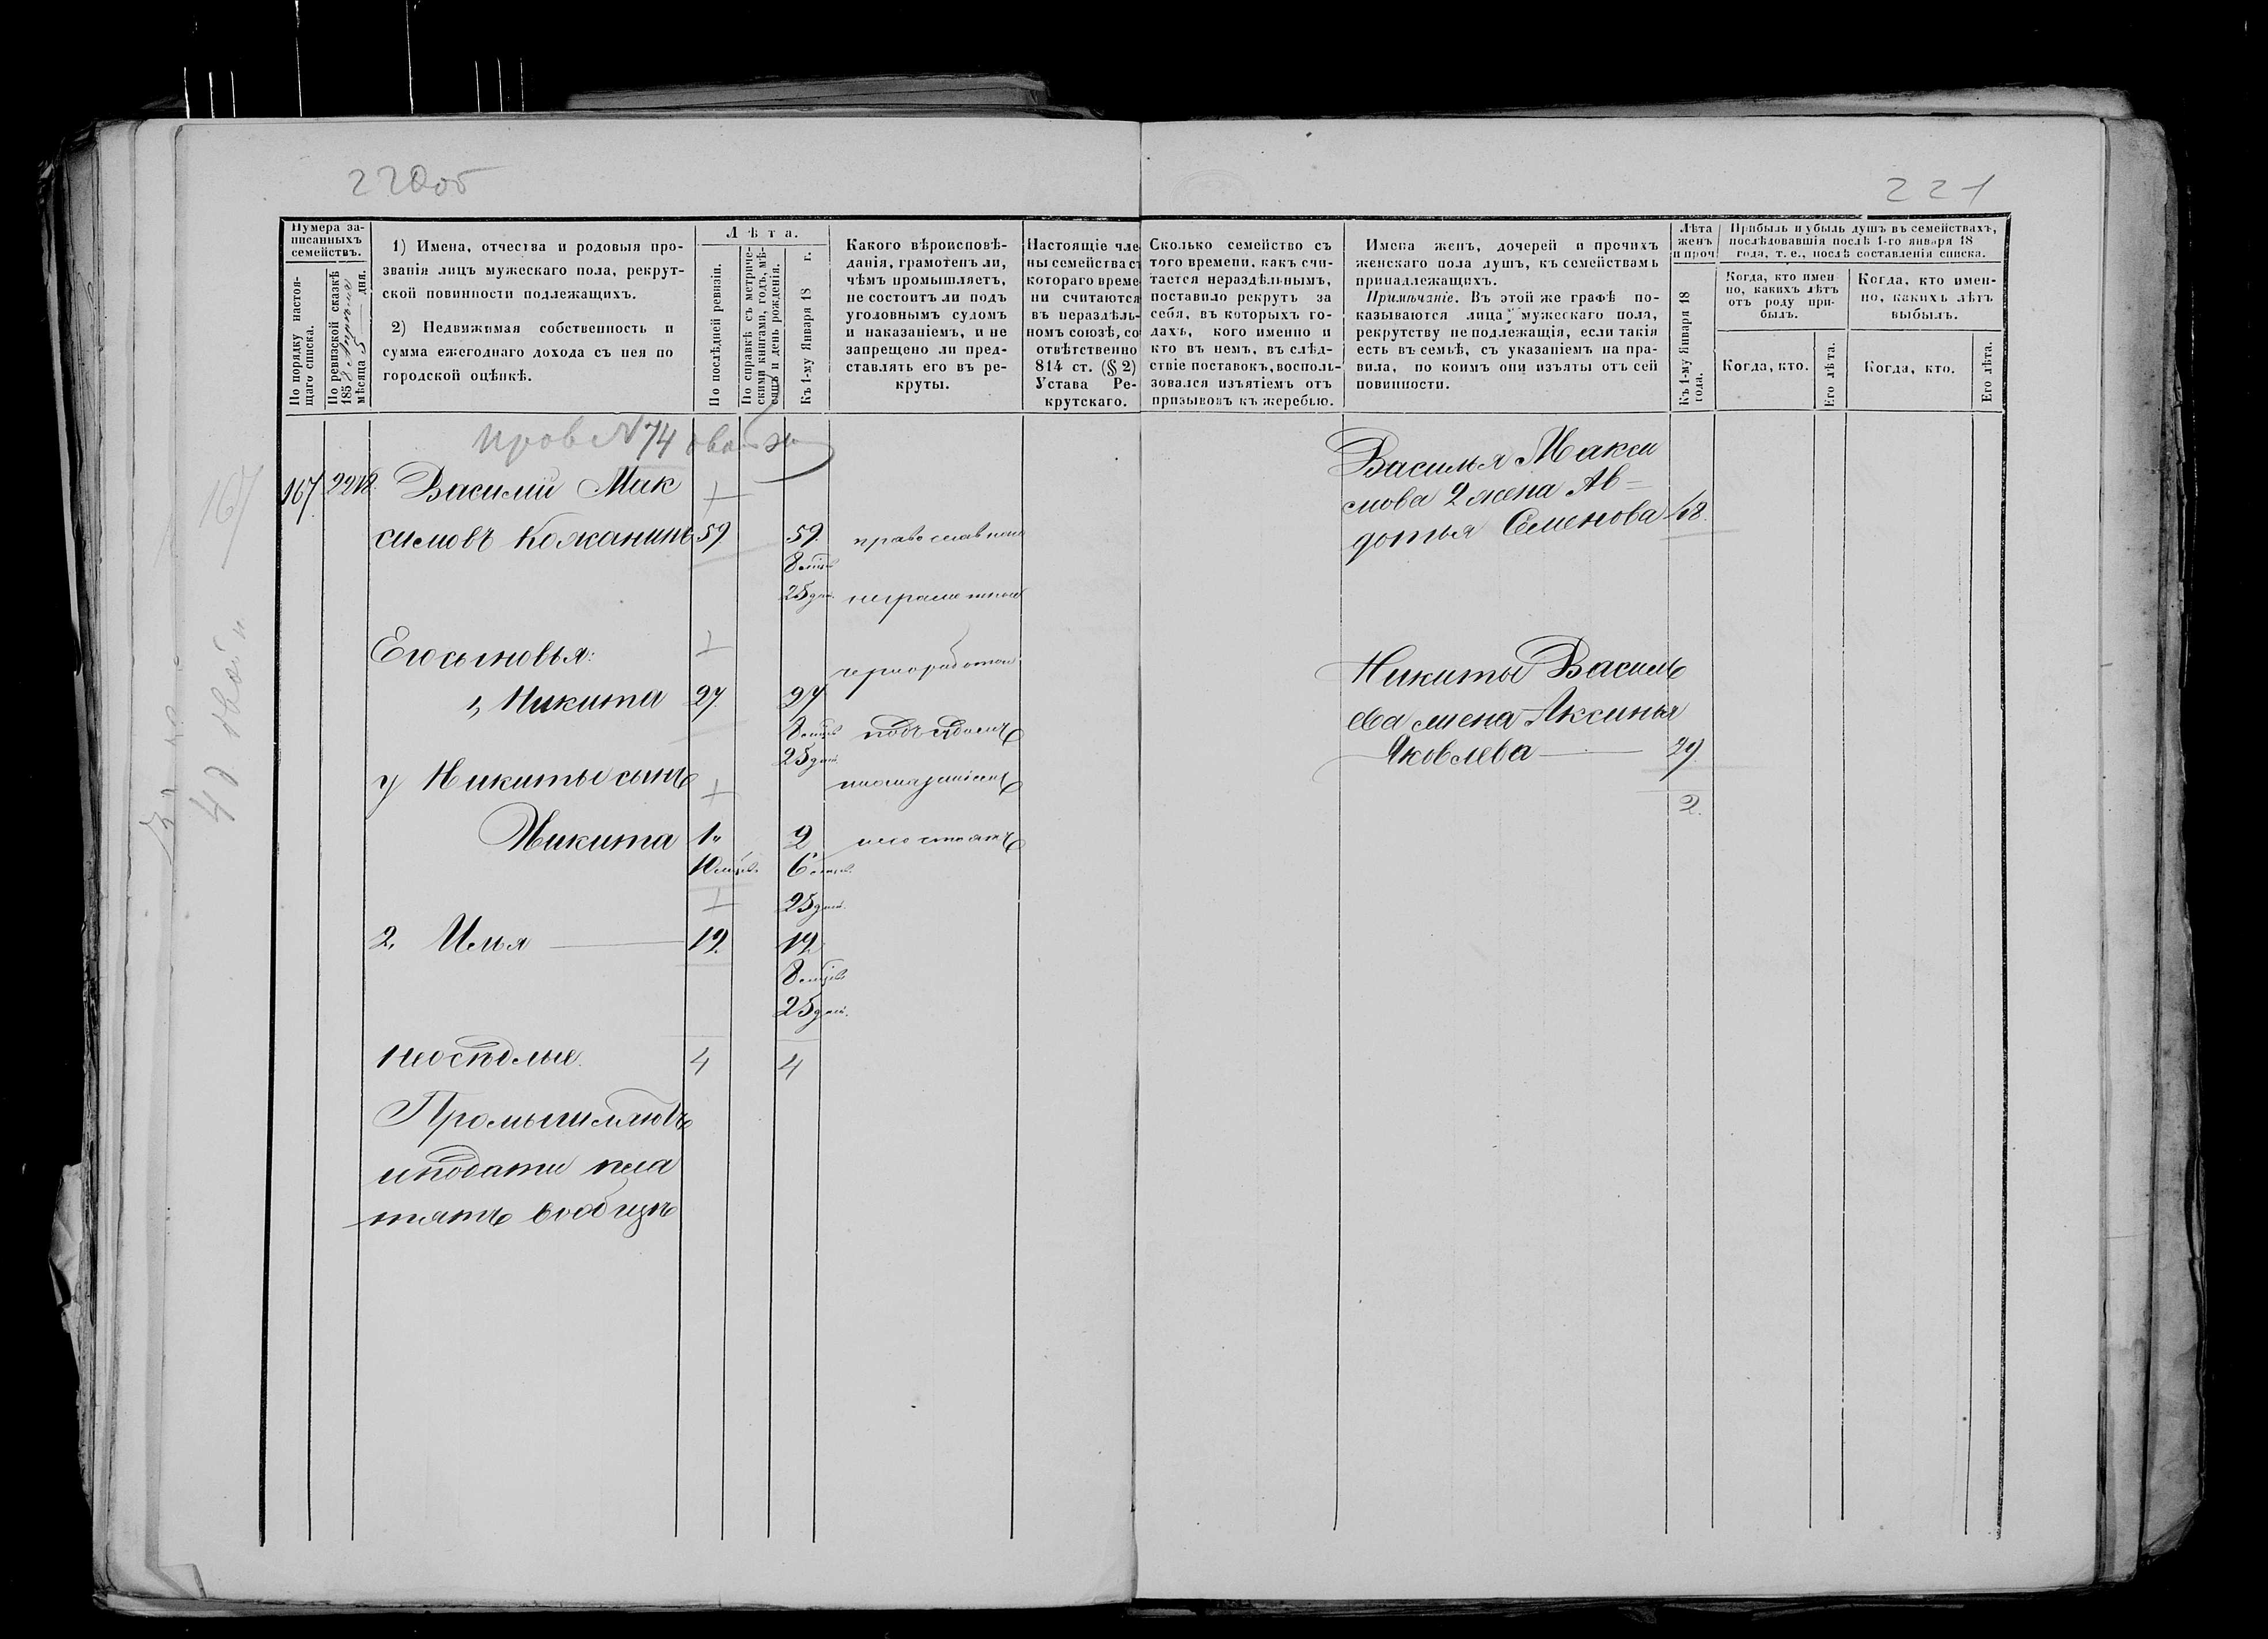 220об
221
Нумера за-
писанныхъ
семействъ.
По порядку настоя-
щаго списка.
По ревизской сказкѣ
1858
мѣсяца 5 дня.
1) Имена, отчества и родовыя про-
званія лицъ мужескаго пола, рекрут-
ской повинности подлежащихъ.
2) Недвижимая собственность и
сумма ежегоднаго дохода съ нея по
городской оцѣнкѣ.
Лѣта.
По послѣдней ревизіи.
По справкѣ съ метриче-
скими книгами, годъ, мѣ-
сяцъ и день рожденія.
Къ 1-му Января 18 г.
Какого вѣроисповѣ-
данія, грамотенъ ли,
чѣмъ промышляетъ,
не состоитъ ли подъ
уголовнымъ судомъ
и наказаніемъ, и не
запрещено ли пред-
ставлять его въ ре-
круты.
Настоящіе чле
ны семейства съ
котораго време-
ни считаются
въ нераздѣль-
номъ союзѣ, со
отвѣтственно
814 ст. (§ 2)
Устава Ре-
крутскаго.
Сколько семейство съ
того времени, какъ счи-
тается нераздѣльнымъ,
поставило рекрутъ за
себя, въ которыхъ го-
дахъ, кого именно и
кто въ немъ, въ слѣд-
ствіе поставокъ, восполь-
зовался изъятіемъ отъ
призывовъ къ жеребью.
Имена женъ, дочерей и прочихъ
женскаго пола душъ, къ семействамъ
принадлежащихъ.
Примѣчаніе. Въ этой же графѣ по-
казываются лица мужескаго пола,
рекрутству не подлежащія, если такія
есть въ семьѣ, съ указаніемъ на пра-
вила, по коимъ они изъяты отъ сей
повинности.
Лѣта
женъ
и проч
Къ 1-му Января 18
года.
Прибыль и убыль душъ въ семействахъ,
послѣдовавшія послѣ 1-го января 18
года, т. е., послѣ составленія списка.
Когда, кто имен
но, какихъ лѣтъ
отъ роду при-
былъ.
Когда, кто имен-
но, какихъ лѣтъ
выбылъ.
Когда, кто.
Его лѣта.
Когда, кто.
Его лѣта.
пров №74
167
167 2218. Василій Мак
симовъ Кожанинъ 59 59 православнаго
8 мѣс
25 дней неграмотный
Его сыновья: чернорабочій
1, Никита 27. 27
8 мѣсяц подъ судомъ
25 дней
у Никиты сынъ и наказаніемъ
Никита 1. 2 не состоятъ
10 мѣсяц. 6 мѣсяц.
25 дней.
2. Илья 19. 19.
8 мѣсяц.
25 дней.
Неосѣдлые. 4 4
Промышляютъ
и подати пла
тятъ вообще
Василья Макси
мова 2 жена Ав=
дотья Семенова 48.
Никиты Василь
ева жена Аксинья
Яковлева 29.
2.